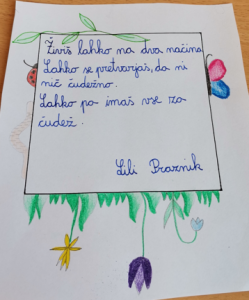 Živiš lahko na dva načina.
Lahko se pretvarjaš, da ni
nič čudežno.
Lahko pa imaš vse za
čudež.
Lili Praznik